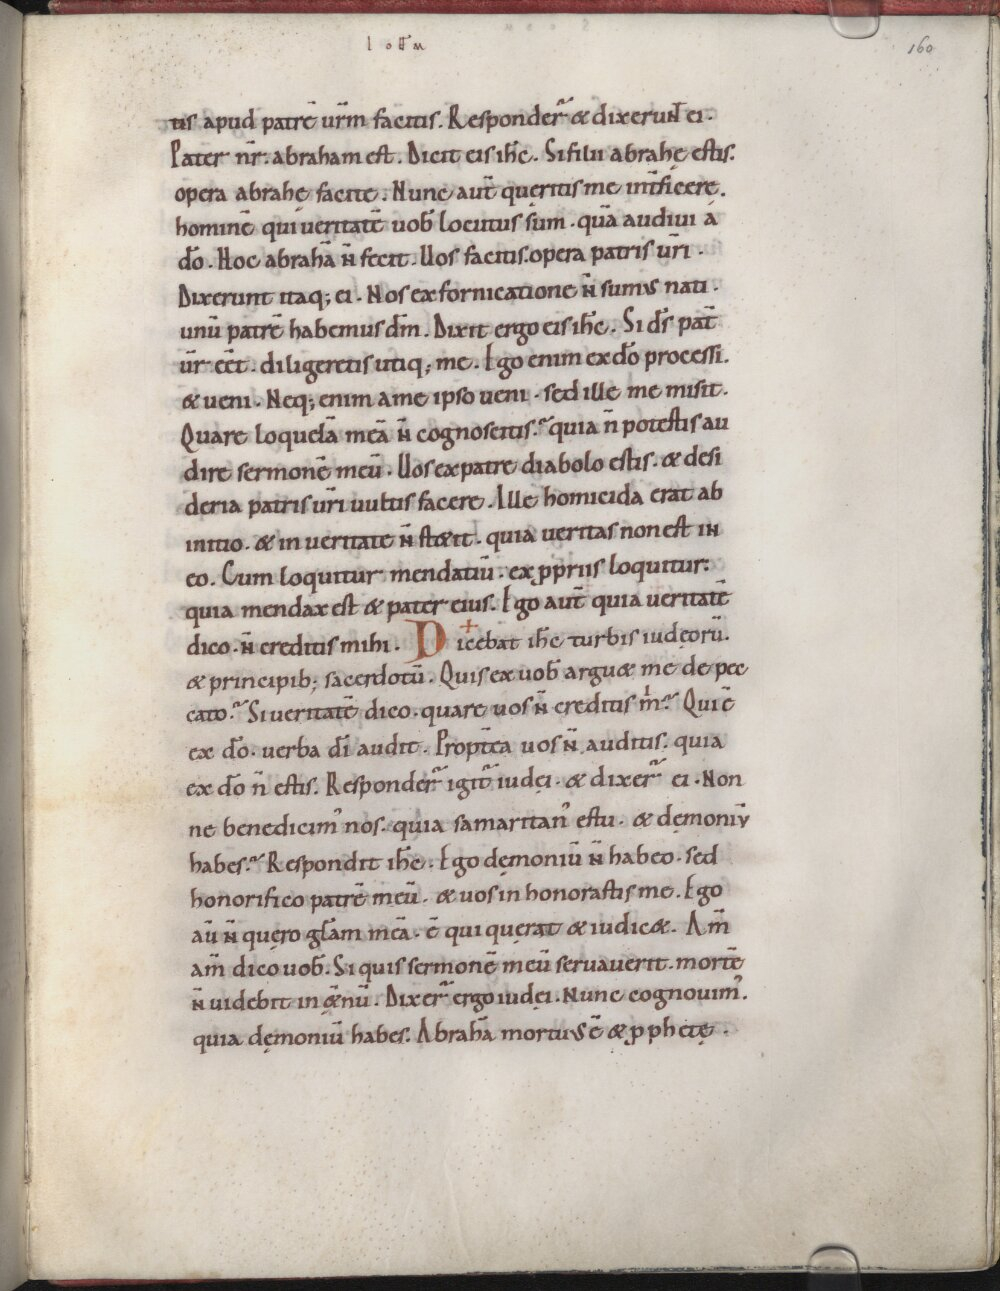 160
tis apud patrē ur̄m facitis. Responder̄ & dixerunt ei.
Pater nr̄. abraham est. Dicit eis ih̄c. Si filii abrahę estis.
opera abrahę facite. Nunc aut̄ queritis me int̄ficere.
hominē qui veritatē uob̄ locutus sum. quā audiui a
dō. Hoc abrahā n̄ fecit. Uos facitis. opera patris ur̄i.
Dixerunt itaq; ei. Nos ex fornicatione n̄ sumus nati.
unū patrē habemus dm̄. Dixit ergo eis ih̄c. Si ds̄ pat̄
ur̄ eēt. diligeretis utiq; me. Ego enim ex dō processi.
& ueni. Neq; enim a me ipso ueni. sed ille me misit.
Quare loquelā meā n̄ cognoscitis? quia n̄ potestis au
dire sermonē meū. Uos ex patre diabolo estis. & desi
deria patris ur̄i uultis facere. Ille homicida erat ab
initio. & in ueritate n̄ stetit. quia ueritas non est in
eo. Cum loquitur mendatiū. ex ꝓpriis loquitur.
quia mendax est & pater eius. Ego aut̄ quia ueritatē
dico. n̄ creditis mihi. Dicebat ih̄c turbis iudęorū.
& principib; sacerdotū. Quis ex uob̄ argu& me de pec
cato? Si ueritatē dico. quare uos n̄ creditis m̄? Qui ē
ex dō. uerba dī audit. Propt̄ea uos n̄ auditis. quia
ex dō n̄ estis. Responder̄ igit̄ iudęi. & dixer̄ ei. Non
ne benedicim᾿ nos. quia samaritan᾿ es tu. & dęmoniū
habes? Respondit ih̄c. Ego dęmoniū n̄ habeo. sed
honorifico patrē meū. & uos inhonorastis me. Ego
aū n̄ quęro gl̄am meā. ē qui querat & iudic&. Am̄
am̄ dico uob̄. Si quis sermonē meū seruauerit. mortē
n̄ uidebit in ęt̄nū. Dixer̄ ergo iudęi. Nunc cognouim᾿.
quia dęmoniū habes. Abrahā mortuus ē & ꝓphetę.